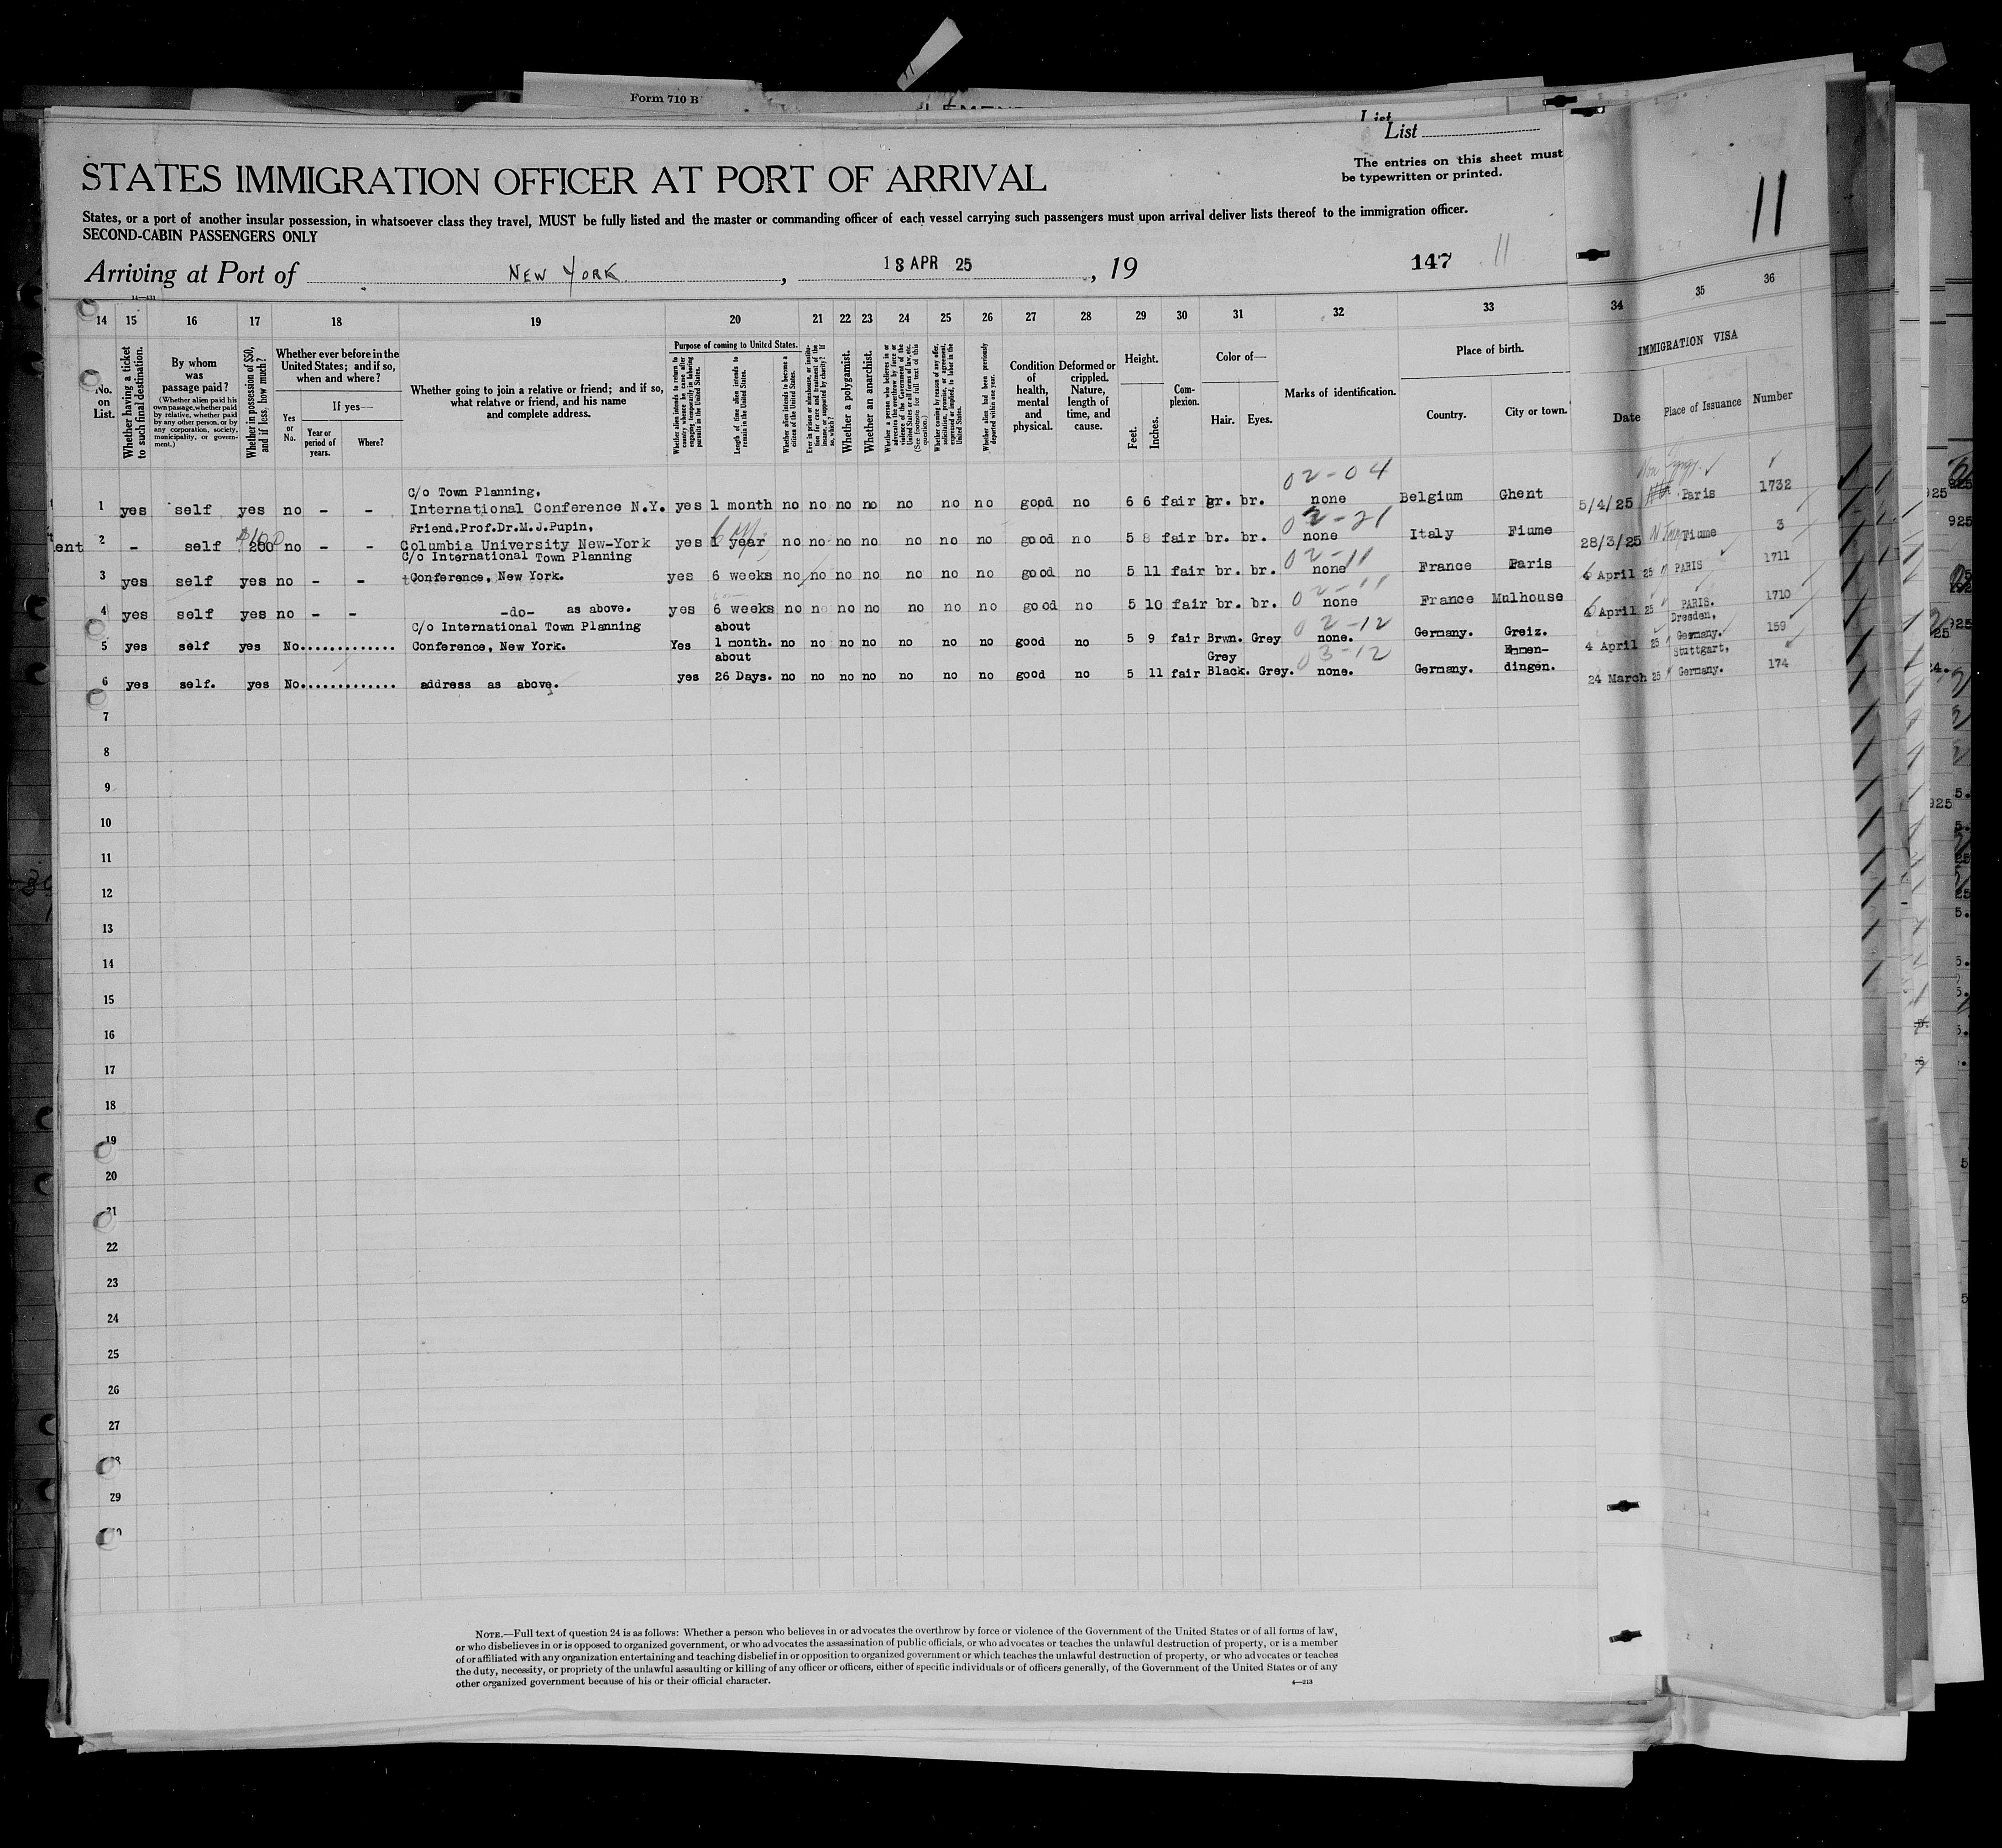 Form 710 B
List
List
The entries on this sheet must
be typewritten or printed.
11
STATES IMMIGRATION OFFICER AT PORT OF ARRIVAL
States, or a port of another insular possession, in whatsoever class they travel, MUST be fully listed and the master or commanding officer of each vessel carrying such passengers must upon arrival deliver lists thereof to the immigration officer.
SECOND-CABIN PASSENGERS ONLY
Arriving at Port of NEW YORK , 18 APR 25 , 19 147 11
14 15 16 17 18 19 20 21 22 23 24 25 26 27 28 29 30 31 32 33 34 35 36
No. on List.
Whether having a ticket to such final destination.
By whom was passage paid?
(Whether alien paid his own passage, whether paid by relative, whether paid by any other person, or by any corporation, society, municipality, or government.)
Whether in possession of $50, and if less, how much?
Whether ever before in the United States; and if so, when and where?
Yes or No.
If yes—
Year or period of years.
Where?
Whether going to join a relative or friend; and if so, what relative or friend, and his name and complete address.
Purpose of coming to United States.
Whether alien intends to return to country whence he came after engaging temporarily in laboring pursuits in the United States.
Length of time alien intends to remain in the United States.
Whether alien intends to become a citizen of the United States.
Ever in prison or almshouse, or institution for care and treatment of the insane, or supported by charity? If so, which?
Whether a polygamist.
Whether an anarchist.
Whether a person who believes in or advocates the overthrow by force or violence of the Government of the United States or all forms of law, etc. (See footnote for full text of this question.)
Whether coming by reason of any offer, solicitation, promise, or agreement, expressed or implied, to labor in the United States.
Whether alien had been previously deported within one year.
Condition of health, mental and physical.
Deformed or crippled. Nature, length of time, and cause.
Height.
Feet. Inches.
Complexion.
Color of—
Hair. Eyes.
Marks of identification.
Place of birth.
Country. City or town.
IMMIGRATION VISA
Date Place of Issuance Number
02-04
C/o Town Planning,
1 yes self yes no - - International Conference N.Y. yes 1 month no no no no no no no good no 6 6 fair br. br. none Belgium Ghent 5/4/25 Paris 1732
Friend.Prof.Dr.M.J.Pupin, 02-21
ent 2 - self 200 no - - Columbia University New-York yes 1 year no no no no no no no good no 5 8 fair br. br. none Italy Fiume 28/3/25 Fiume 3
C/o International Town Planning 02-11
3 yes self yes no - - Conference, New York. yes 6 weeks no no no no no no no good no 5 11 fair br. br. none France Paris 4 April 25 PARIS 1711
02-11
4 yes self yes no - - -do- as above. yes 6 weeks no no no no no no no good no 5 10 fair br. br. none France Mulhouse 4 April 25 PARIS. 1710
C/o International Town Planning about 02-12 Dresden,
5 yes self yes No............. Conference, New York. Yes 1 month. no no no no no no no good no 5 9 fair Brwn. Grey none. Germany. Greiz. 4 April 25 Germany. 159
about Grey 03-12 Emmen- Stuttgart,
6 yes self. yes No............. address as above. yes 26 Days. no no no no no no no good no 5 11 fair Black. Grey. none. Germany. dingen. 24 March 25 Germany. 174
7
8
9
10
11
12
13
14
15
16
17
18
19
20
21
22
23
24
25
26
27
29
NOTE.—Full text of question 24 is as follows: Whether a person who believes in or advocates the overthrow by force or violence of the Government of the United States or of all forms of law,
or who disbelieves in or is opposed to organized government, or who advocates the assassination of public officials, or who advocates or teaches the unlawful destruction of property, or is a member
of or affiliated with any organization entertaining and teaching disbelief in or opposition to organized government or which teaches the unlawful destruction of property, or who advocates or teaches
the duty, necessity, or propriety of the unlawful assaulting or killing of any officer or officers, either of specific individuals or of officers generally, of the Government of the United States or of any
other organized government because of his or their official character.
4—213